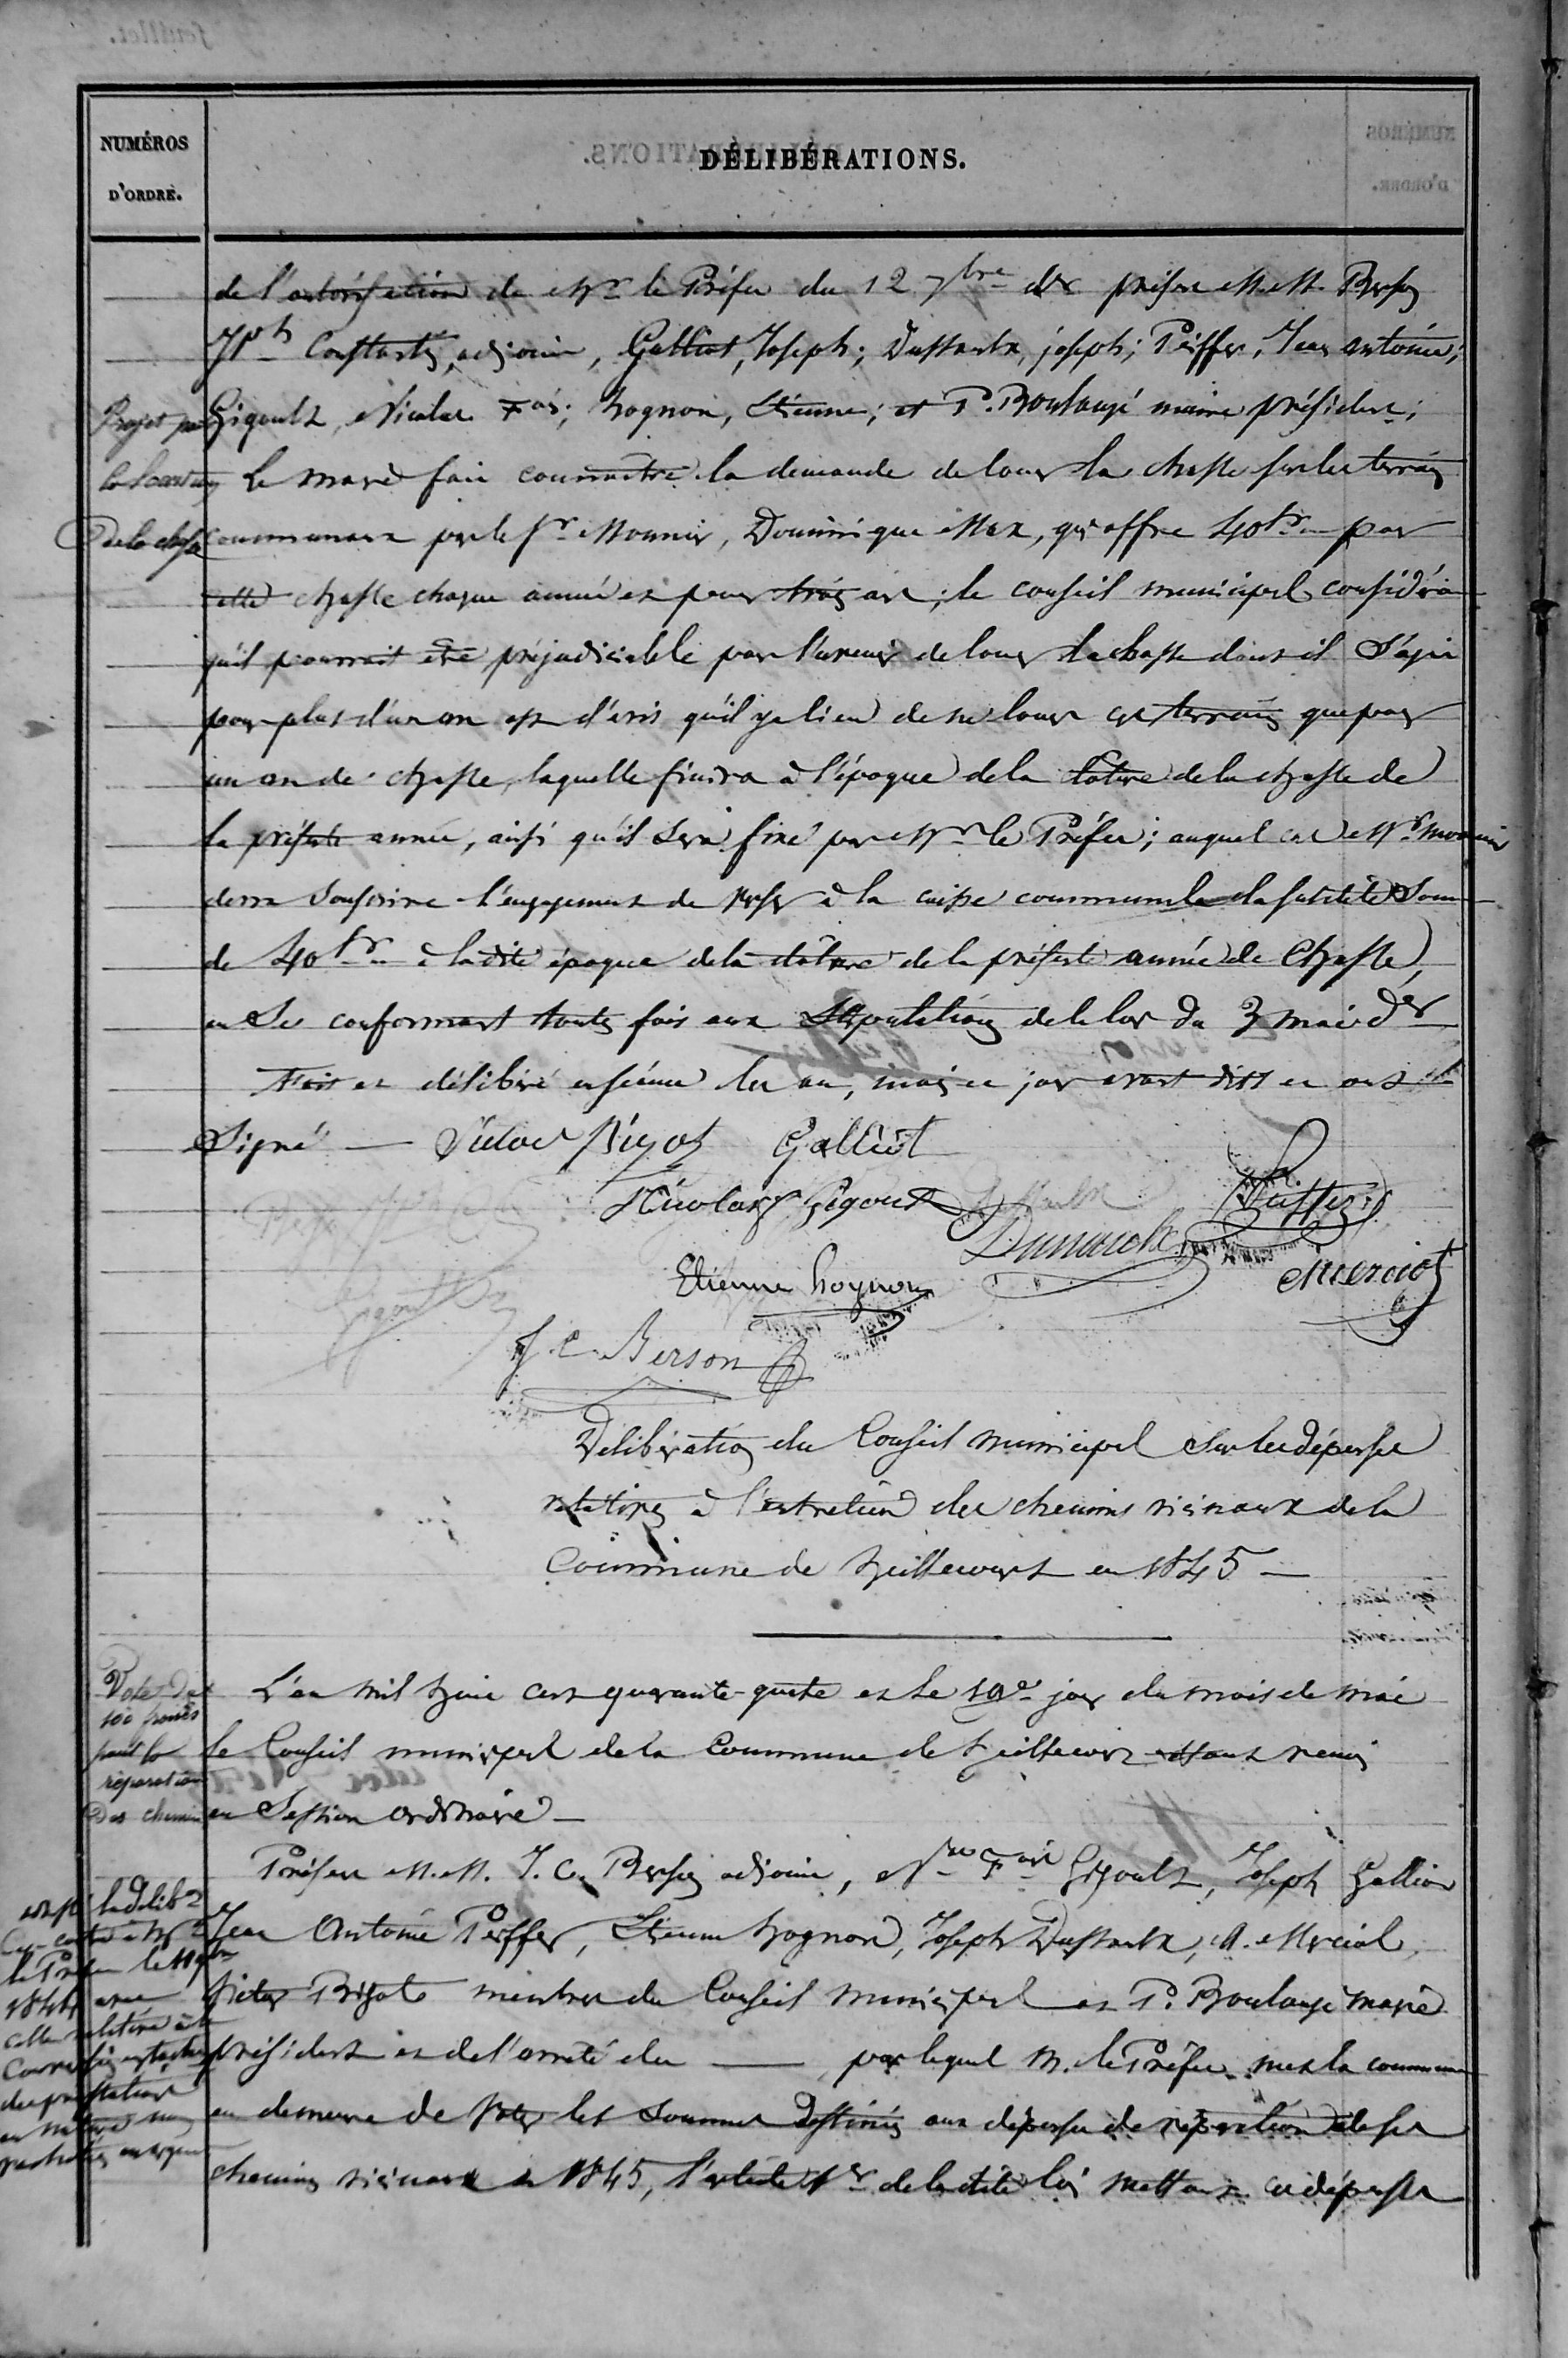 NUMÉROS
D'ORDRE.
DÉLIBÉRATIONS.
de l'autorisation de Mr le Préfet du 12 7bre der présens M.M. Berson
Jph Constantin, adjoint, Galliot, Joseph; Dussaulx, joseph; Peiffer, Jean antoine;
Gigoult, Nicolas Fois; hognon, Etienne; et P. Boulangé maire président;
Projet pr
la location
De la chasse
Le maire fait connaitre la demande de louer la chasse sur les terrains
communaux par le Sr Monnier, Dominique Max, qui offre 40 fr par
cette chasse chaque année et pour trois ans; le conseil municipal considérant
qu'il pourrait être préjudiciable pour l'avenir de louer la chasse dont il s'agit
pour plus d'un an est d'avis qu'il y a lieu de ne louer ces terrains que pour
un an de chasse, laquelle finira à l'époque de la cloture de la chasse de
la présente année, ainsi qu'il sera fixé par Mr le Préfet; auquel cas Mr Monnier
devra souscrire l'engagement de verser à la caisse communale la susdite Somme
de 40 fr à la dite époque de la cloture de la présente année de Chasse,
en Se conformant toutes fois aux Stipulations de la loi du 3 mai der
Fait et délibéré en séance les an, mois et jour avant dits et ont
Signé — Victor Bigot Galliot
Nicolas F Gigoult Dussaulx Peiffer
Dumarche
Etienne hognon Merciol
J. C. Berson
Délibération du Conseil municipal Sur les dépenses
relatives à l'entretien des chemins vicinaux de la
Commune de heillecourt en 1845 —
Vote de
100 francs
pour la
réparation
Des chemins
L'an mil huit cent quarante-quatre et le 10e jour du mois de mai
le Conseil municipal de la Commune de heillecourt étant réuni
en Session ordinaire —
Présens M.M. J. C. Berson adjoint, Nas Fois Gigoult, Joseph Galliot
Jean Antoine Peiffer, Etienne hognon, Joseph Dussaulx, A. Merciol,
Victor Bigot membres du Conseil municipal et P. Boulangé Maire
président et de l'arreté du — par lequel M. le Préfet met la commune
en demeure de voter les sommes destinées aux dépenses de réparation de ses
chemins vicinaux en 1845, l'article 1er de la dite loi mettant ces dépenses
la délibon
Ci-contre à Mr
le Préfet le 11
1844 avec
celle relative à la
des prestations
en nature
en argent